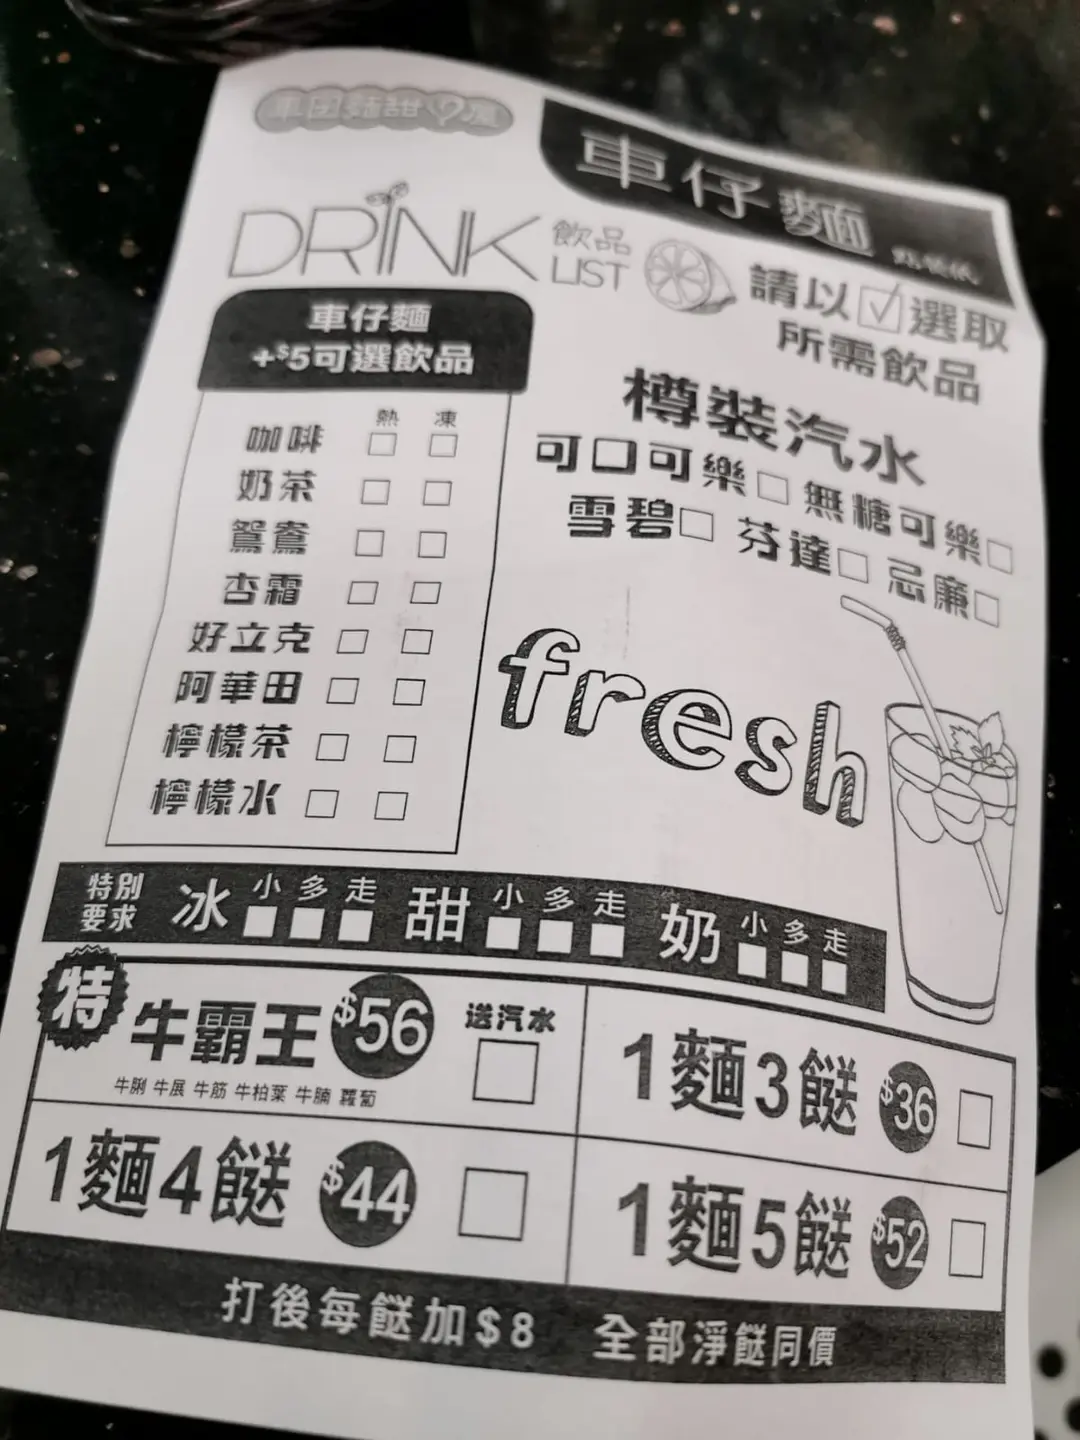 車仔麵
點餐紙
DRINK 飲品
LIST
請以☑選取
所需飲品
車仔麵
+$5可選飲品
熱 凍
咖啡 □ □
奶茶 □ □
鴛鴦 □ □
杏霜 □ □
好立克 □ □
阿華田 □ □
檸檬茶 □ □
檸檬水 □ □
樽裝汽水
可口可樂□ 無糖可樂□
雪碧□ 芬達□ 忌廉□
fresh
特別要求 冰 小□ 多□ 走□ 甜 小□ 多□ 走□ 奶 小□ 多□ 走□
特 牛霸王 $56 送汽水 □
牛脷 牛展 牛筋 牛柏葉 牛腩 蘿蔔
1麵3餸 $36 □
1麵4餸 $44 □
1麵5餸 $52 □
打後每餸加$8 全部淨餸同價